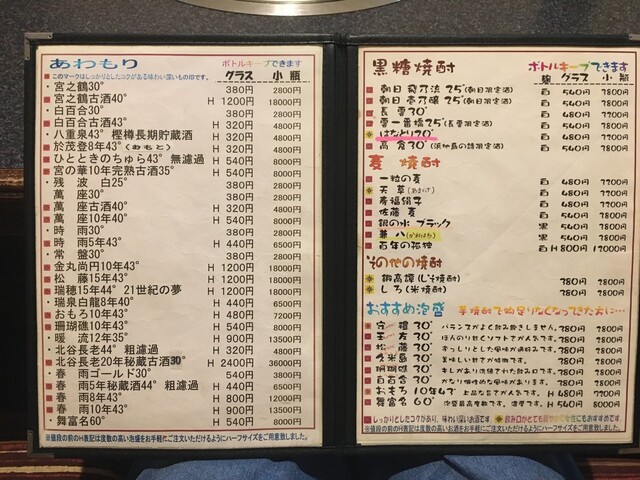 あわもり
ボトルキープできます
■このマークはしっかりとしたコクがある味わい深いもの印です。 グラス 小瓶
・宮之鶴30° 380円 2800円
■宮之鶴古酒40° H 1200円 18000円
・白百合30° 380円 2800円
■白百合古酒43° H 320円 4800円
・八重泉43° 樫樽長期貯蔵酒 H 320円 4800円
■於茂登8年43°(おもと) H 320円 4800円
■ひとときのちゅら43° 無濾過 H 540円 8000円
■宮の華10年完熟古酒35° H 540円 8000円
・残波 白25° 380円 2800円
萬座30° 380円 2800円
■萬座古酒40° H 320円 4800円
■萬座10年40° H 540円 8000円
・時雨30° 380円 2800円
■時雨5年43° H 440円 6500円
・常盤30° 380円 2800円
■金丸尚円10年43° H 1200円 18000円
■松藤15年43° H 1200円 18000円
■瑞穂15年44° 21世紀の夢 H 1200円 18000円
・瑞泉白龍8年40° H 440円 6500円
■おもろ10年43° H 480円 7200円
■珊瑚礁10年43° H 540円 8000円
■暖流12年35° H 900円 13500円
・北谷長老44° 粗濾過 H 320円 4800円
■北谷長老20年秘蔵古酒30° H 2400円 36000円
・春雨ゴールド30° 540円 3800円
■春雨5年秘蔵酒44° 粗濾過 H 440円 6500円
■春雨8年43° H 800円 12000円
■春雨10年43° H 900円 13500円
・舞富名60° H 540円 8000円
※値段の前のH表記は度数の高い泡盛をお手軽にご注文いただけるようにハーフサイズをご用意致しました。
黒糖焼酎 ボトルキープできます
麹 グラス 小瓶
■朝日 飛乃流 25°(朝日限定酒) 白 540円 7800円
■朝日 壱乃醸 25°(朝日限定酒) 白 540円 7800円
■長雲30° 白 540円 7800円
■雲一番橋25°(長雲限定酒) 白 480円 7200円
はなとり20° 白 480円 7700円
■高倉30° 白 540円 7800円
麦焼酎
■一粒の麦 白 480円 7200円
天草(あまくさ) 白 480円 7700円
■青福絹子 白 480円 7200円
■佐藤 麦 白 540円 7800円
■銀の水 ブラック 黒 540円 7800円
■兼八(かねはち) 白 540円 7800円
■百年の孤独 白 H 800円 12000円
その他の焼酎
鍛高譚(しそ焼酎) 380円 2800円
しろ(米焼酎) 380円 2800円
おすすめ泡盛 芋焼酎で物足りなくなってきた方に…
■守禮30° バランスがよく飲み飽きしません。 380円 2800円
■玉友30° ほんのり甘くソフトで人気です。 380円 2800円
■松藤30° すっしりとした風味が通好みです。 380円 2800円
■久米島30° 美味しい甘さが特徴です。 380円 2800円
■珊瑚礁30° キレがあり洗練された飲み口です。 380円 2800円
■白百合30° かなり個性的な風味があります。 380円 2800円
■おもろ10年43° 上品な甘さが人気です。 H 540円 7700円
■舞富名60° 泡盛最高度数です。濃厚です。 H 540円 8000円
■しっかりとしたコクがあり、味わい深いお酒です
※値段の前のH表記は度数の高いお酒をお手軽にご注文いただけるようにハーフサイズをご用意致しました。